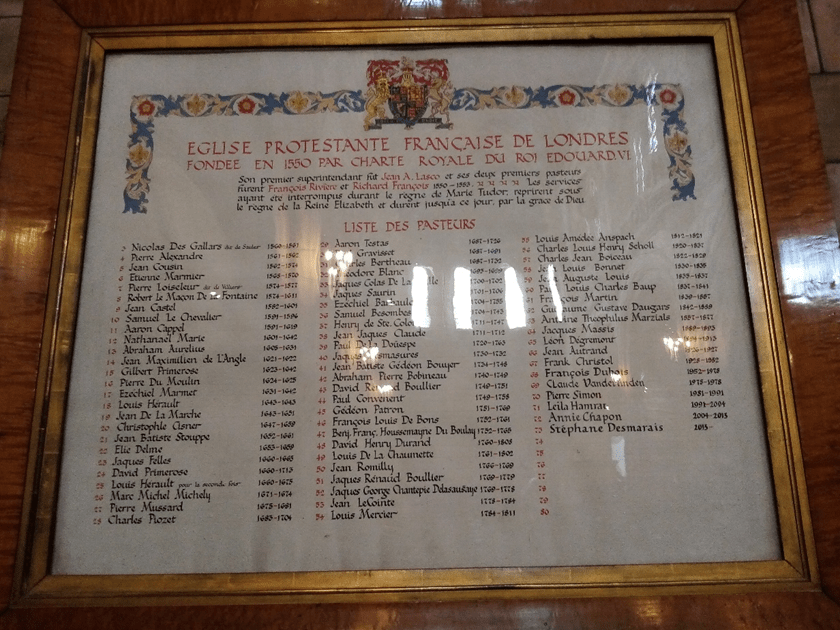 EGLISE PROTESTANTE FRANÇAISE DE LONDRES
FONDEE EN 1550 PAR CHARTE ROYALE DU ROI EDOUARD.VI.
Son premier superintendant fût Jean A. Lasco et ses deux premiers pasteurs
furent François Rivière et Richard François 1550-1553. Les services
ayant ête interrompus durant le règne de Marie Tudor, reprirent sous
le règne de la Reine Elizabeth et durent jusqu'a ce jour, par la grace de Dieu
LISTE DES PASTEURS
3 Nicolas Des Gallars 1560-1561
4 Pierre Alexandre 1561-1562
5 Jean Cousin 1562-1574
6 Etienne Marmier
7 Pierre Loiseleur 1574-1577
8 Robert Le Maçon De La Fontaine 1574-1611
9 Jean Castel 1592-1601
10 Samuel Le Chevalier 1591-1596
11 Aaron Cappol 1591-1619
12 Nathanael Marie 1601-1642
13 Abraham Aurelius 1605-1631
14 Jean Maximilien de L'Angle 1621-1622
15 Gilbert Primerose 1623-1642
16 Pierre Du Moulin 1624-1625
17 Ezéchiel Marmet 1631-1642
18 Louis Hérault 1643-1643
19 Jean De La Marche 1643-1651
20 Christophle Cisner 1647-1659
21 Jean Batiste Stouppe 1652-1661
22 Elie Delme 1653-1659
23 Jaques Felles 1660-1665
24 David Primerose 1660-1713
25 Louis Hérault pour la seconde fois 1660-1675
26 Marc Michel Michely 1671-1674
27 Pierre Mussard 1675-1681
28 Charles Piozet 1683-1704
29 Aaron Testas
Gravisset 1687-1691
Charles Bertheau
Blanc
Jaques Colas De La
34 Jaques Saurin 1701-1706
35 Ezéchiel Barbauld
36 Samuel Besombes
37 Henry de Ste. Colome
38 Jean Jaques Claude
39 Paul De La Douespe 1720-1763
40 Jaques Desmasures 1730-1732
41 Jean Batiste Gédéon Bouyer
42 Abraham Pierre Bobineau 1740-1748
43 David Renaud Boullier 1749-1751
44 Paul Convenent 1749-1755
45 Gédéon Patron 1751-1769
46 François Louis De Bons 1752-1761
47 Benj. Franç. Houssemayne Du Boulay 1752-1765
48 David Henry Durand 1760-1805
49 Louis De La Chaumette 1761-1802
50 Jean Romilly 1766-1769
51 Jaques Rénaud Boullier 1769-1779
52 Jaques George Chantepie Delasausaye 1769-1775
53 Jean LeCointe 1775-1784
54 Louis Mercier 1784-1811
55 Louis Amedée Anspach
56 Charles Louis Henry Scholl
57 Charles Jean Boiceau
58 Jean Louis Bonnet
59 Jean Auguste Louis
60 Paul Louis Charles Baup
61 François Martin
62 Guillaume Gustave Daugars
63 Antoine Theophilus Marzials
64 Jacques Massis
65 Léon Dégremont
66 Jean Autrand
67 Frank Christol
68 François Dubois 1952-1975
69 Claude Vanderlinden 1975-1978
70 Pierre Simon 1981-1991
71 Leila Hamrat 1991-2004
72 Annie Chapon 2004-2013
73 Stéphane Desmarais 2015-
74
75
76
77
78
79
80